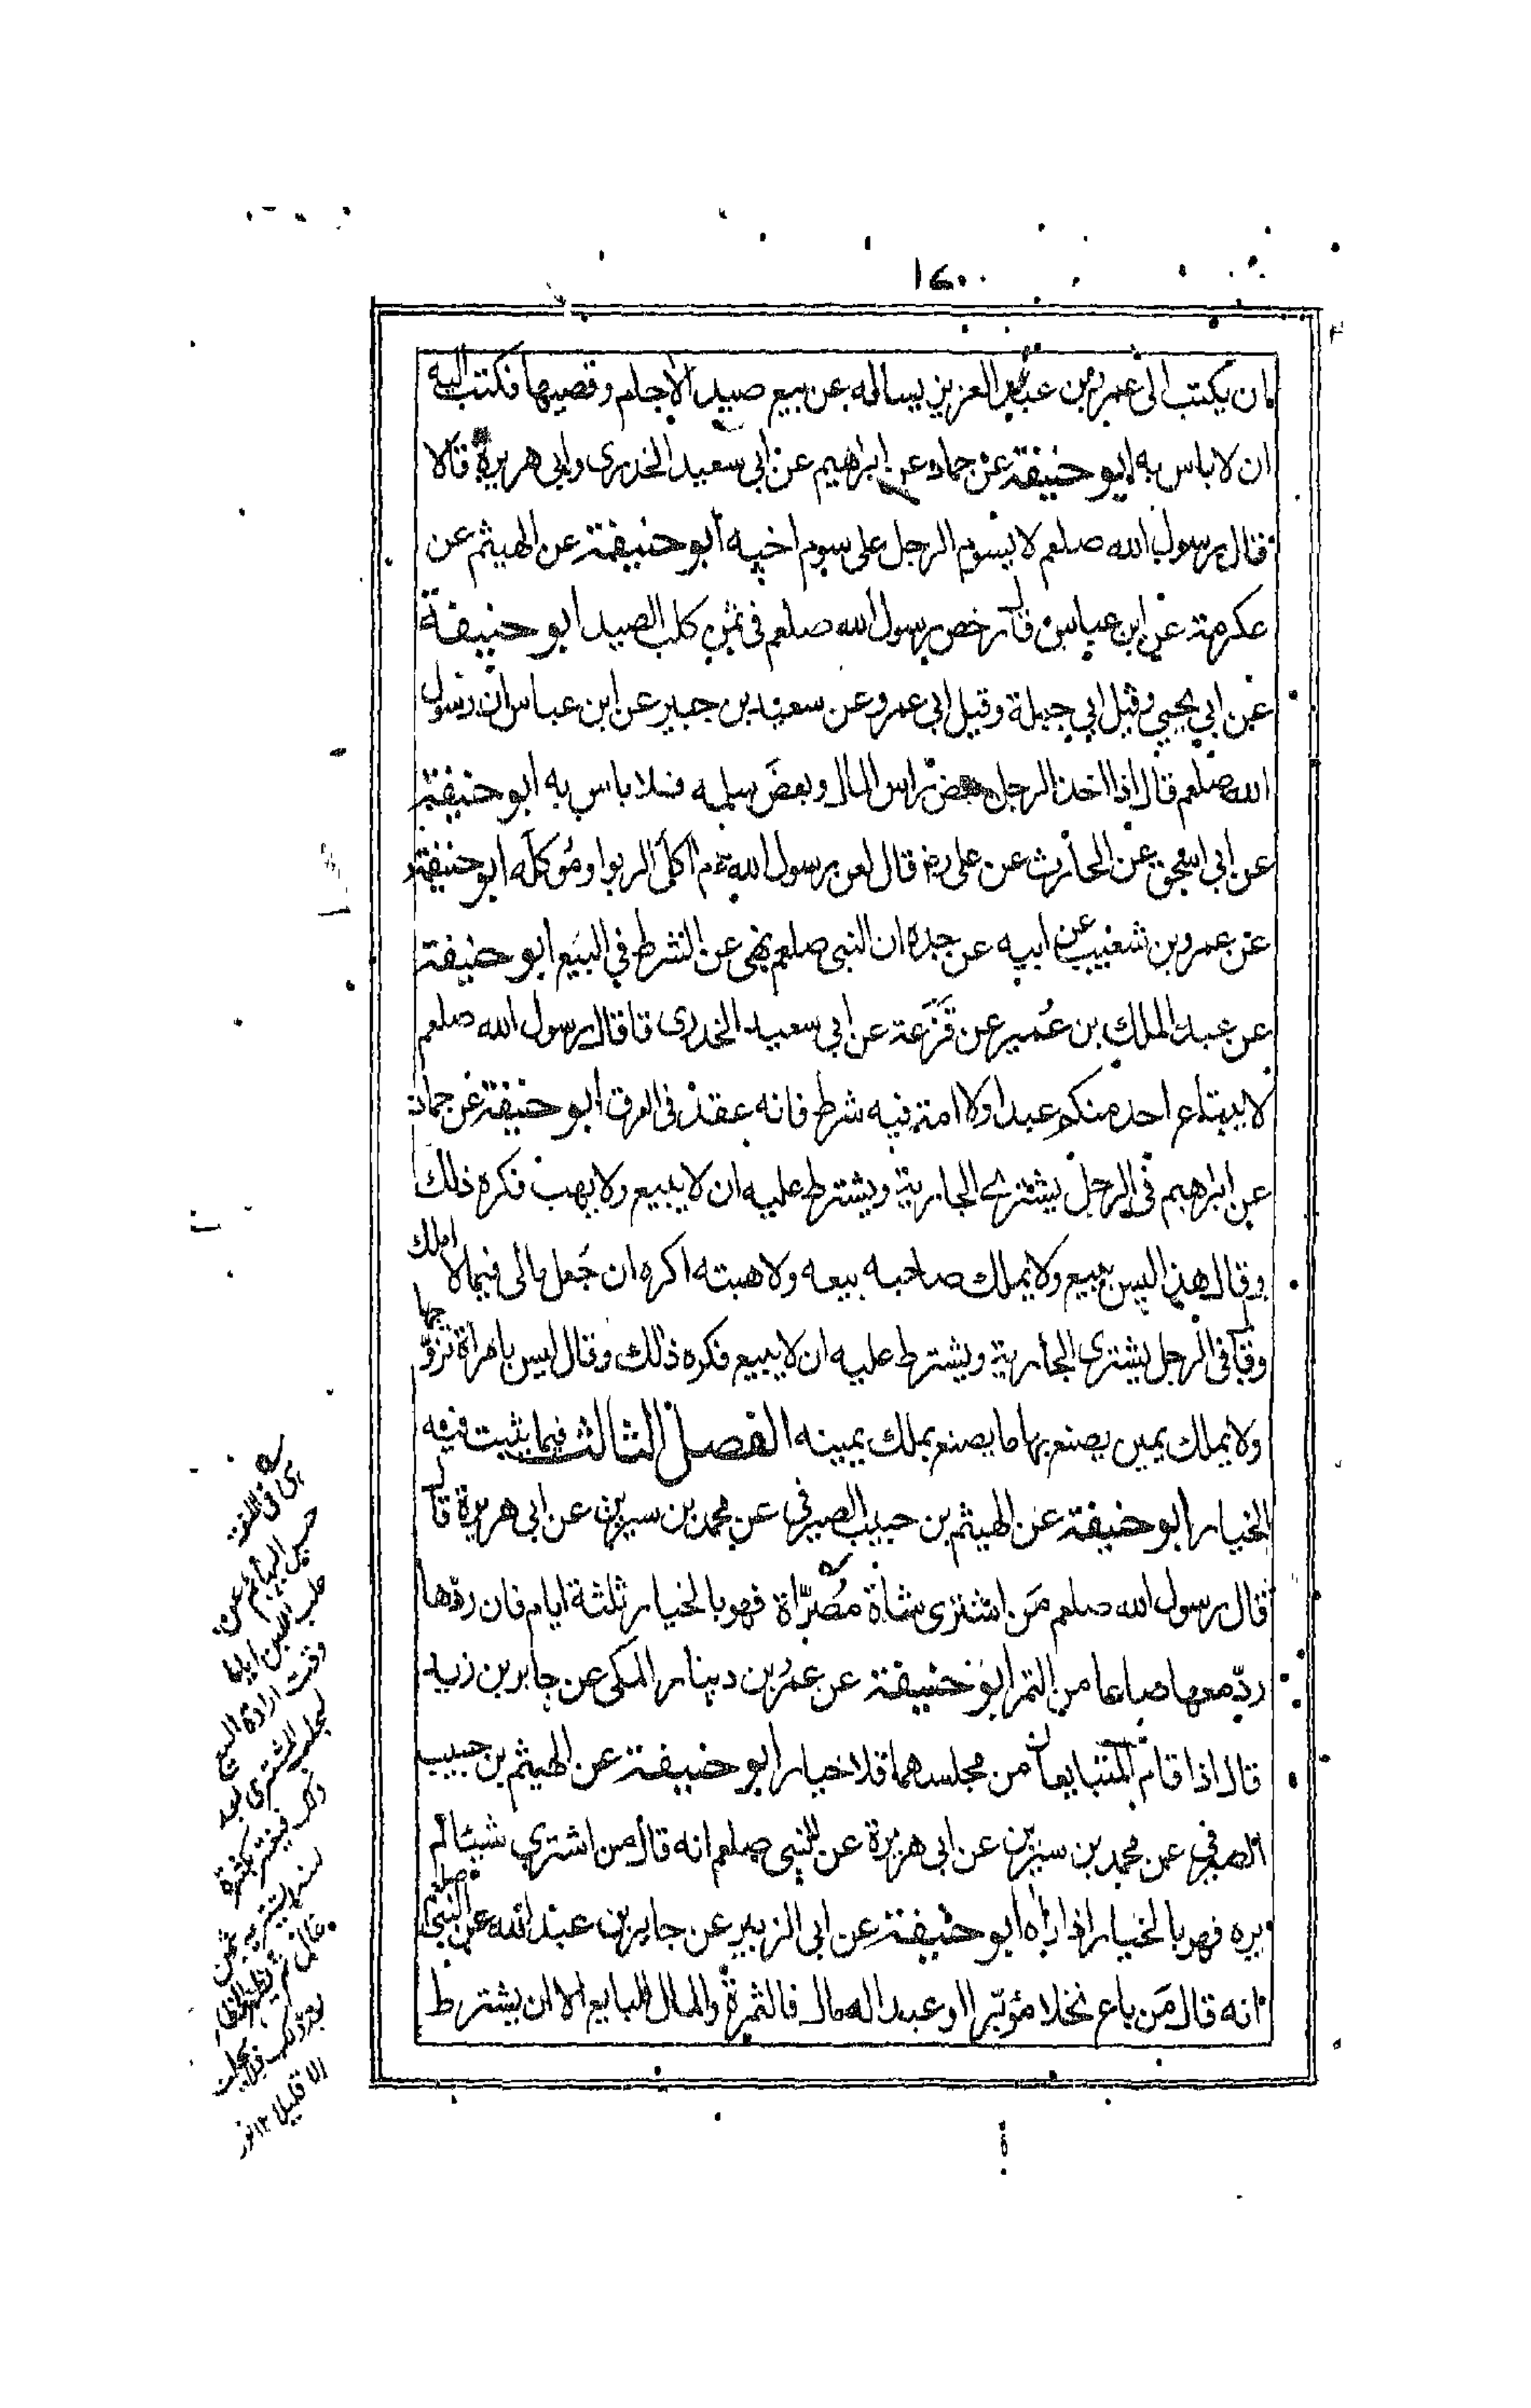 ان يكتب الى عمر بن عبد العزيز يساله عن بيع صيد الاجام وقصبها فكتب اليه
ان لا باس به ابو حنيفة عن حماد عن ابرهيم عن ابي سعيد الخدرى وابي هريرة قالا
قال رسول الله صلعم لا يسوم الرجل على سوم اخيه ابو حنيفة عن الهيثم عن
عكرمة عن ابن عباس قال رخص رسول الله صلعم في ثمن كلب الصيد ابو حنيفة
عن ابي يحيى وقيل ابي جبلة وقيل ابي عمرو عن سعيد بن جبير عن ابن عباس ان رسول
الله صلعم قال اذا اخذ الرجل بعض راس المال وبعض سلمه فلا باس به ابو حنيفة
عن ابي اسحق عن الحارث عن على رض قال لعن رسول الله صلعم اكل الربوا ومُوكله ابو حنيفة
عن عمرو بن شعيب عن ابيه عن جده ان النبى صلعم نهى عن الشرط في البيع ابو حنيفة
عن عبد الملك بن عُمير عن قَزَعة عن ابي سعيد الخدرى قا قال رسول الله صلعم
لا يبتاع احد منكم عبدا ولا امة فيه شرط فانه عقد فى الرق ابو حنيفة عن حماد
عن ابرهيم فى الرجل يشترى الجارية ويشترط عليه ان لا يبيع ولا يهب فكره ذلك
وقال هذا ليس ببيع ولا يملك صاحبه بيعه ولا هبته اكره ان جُعل مالى فيما لا املك
وقال فى الرجل يشترى الجارية ويشترط عليه ان لا يبيع فكره ذلك وقال ليس بامراة تزوّجها
ولا بملك يمين يصنع بها ما يصنع بملك يمينه الفصل الثالث فيما يثبت فيه
الخيار ابو حنيفة عن الهيثم بن حبيب الصيرفى عن محمد بن سيرين عن ابي هريرة قال
قال رسول الله صلعم مَن اشترى شاة مُصَرّاة فهو بالخيار ثلثة ايام فان ردّها
ردّ معها صاعا من التمر ابو حنيفة عن عمرُ بن دينار المكى عن جابر بن زيد
قال اذا قام المتبايعان من مجلسهما فلا خيار ابو حنيفة عن الهيثم بن حبيب
الصرفي عن محمد بن سيرين عن ابى هريرة عن النبى صلعم انه قال من اشترى شيئا لم
يره فهو بالخيار اذا راٰه ابو حنيفة عن ابى الزبير عن جابر بن عبد الله عن النبى صلعم
انه قال مَن باع نخلا مؤبّرا او عبدا له مال فالثمرة والمال للبايع الا ان يشترط
هى فى اللغة
حبس البهائم عن
حلب اللبن اياما
وقت ارادة البيع
ليحلب المشترى بعد
ذلك فيغتر بكثرة
لبنها
الا قليل ١٢ نور